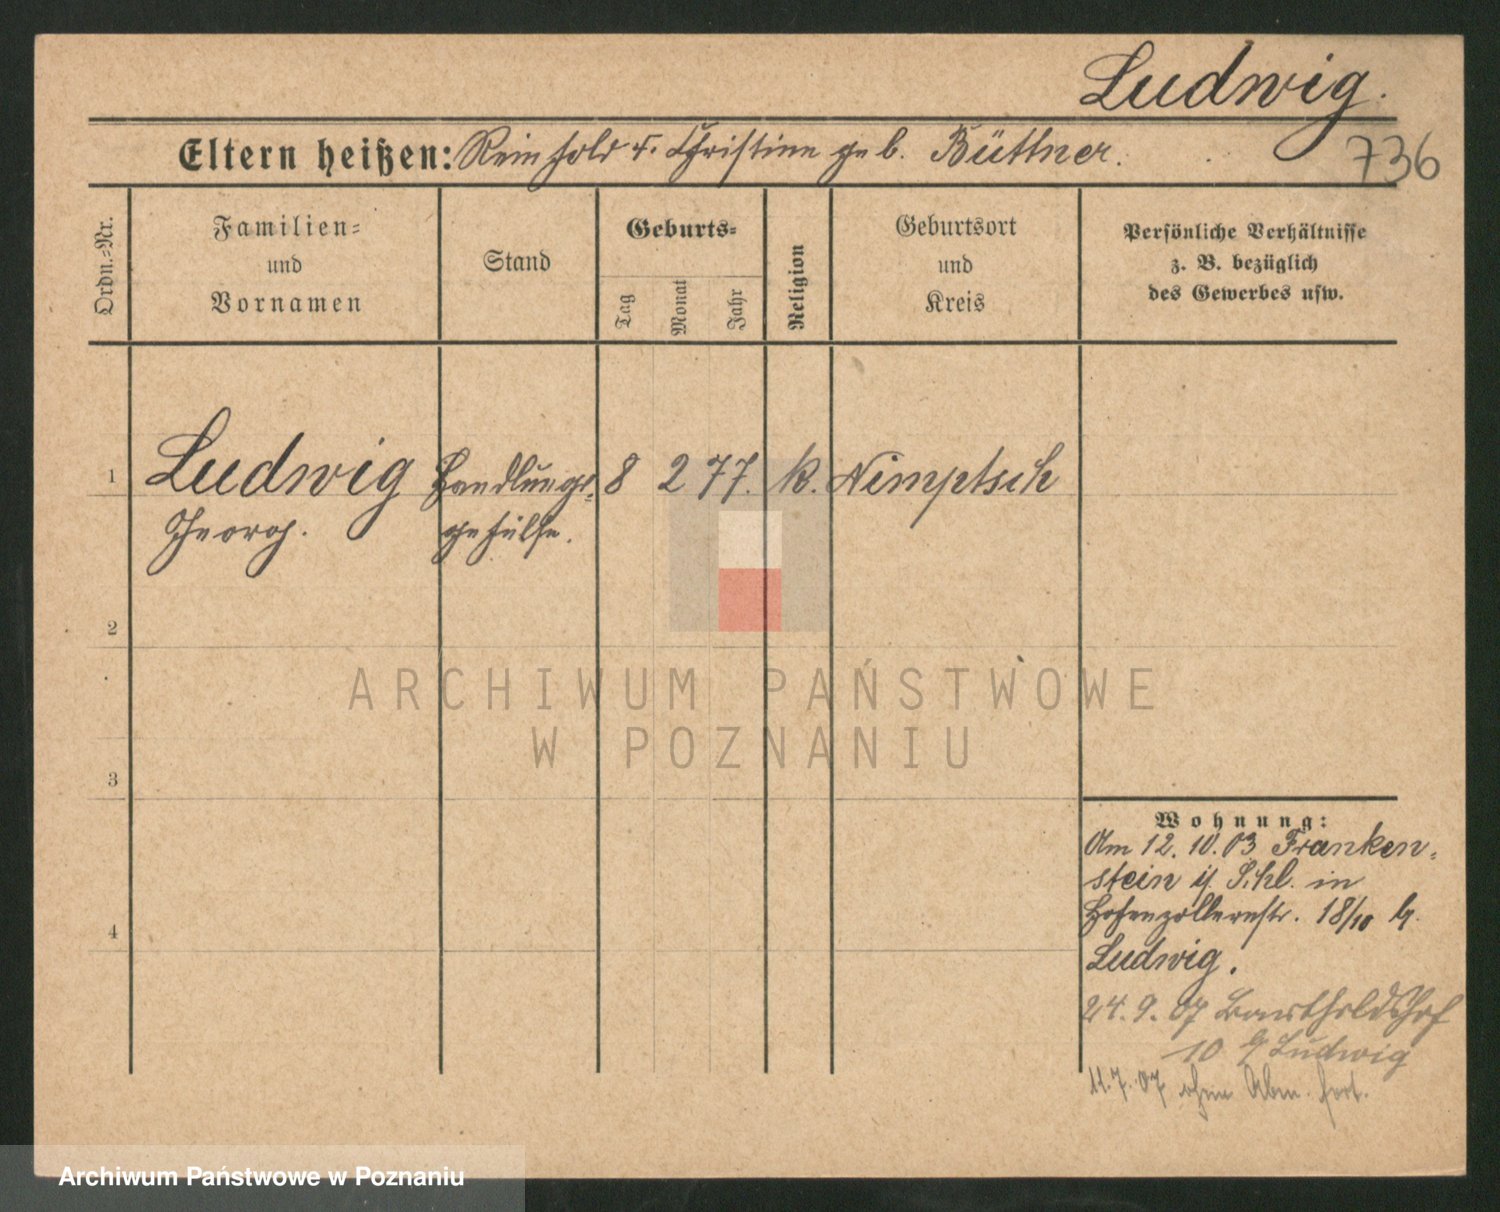 Ludwig.
Eltern heißen: Reinhold u. Christine geb. Büttner.
736
Ordn.-Nr.
Familien-
und
Vornamen
Stand
Geburts-
Tag
Monat
Jahr
Religion
Geburtsort
und
Kreis
Persönliche Verhältnisse
z. B. bezüglich
des Gewerbes usw.
1 Ludwig Handlungs- 8 2 77. k. Nimptsch
Georg. gehülfe.
2
3
4
ARCHIWUM PAŃSTWOWE
W POZNANIU
Wohnung:
Am 12. 10. 03 Franken-
stein i/ Schl. in
Hohenzollernstr. 18/10 b/
Ludwig.
24. 9. 07 Bartholdshof
10 b/ Ludwig
11. 7. 07 ohne Abm. fort.
Archiwum Państwowe w Poznaniu